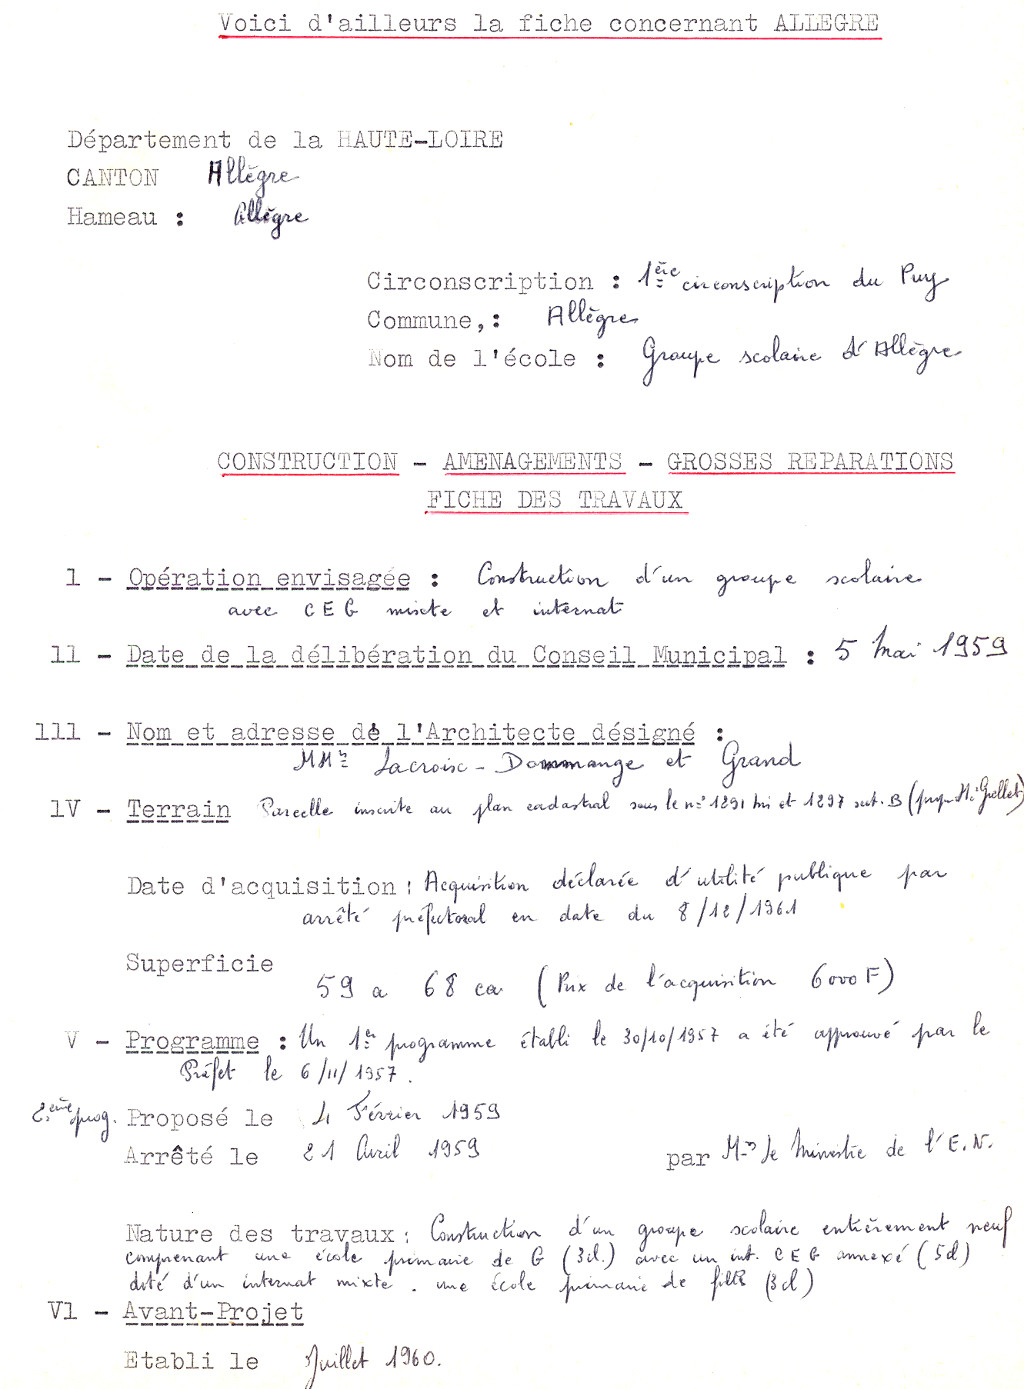 Voici d'ailleurs la fiche concernant ALLEGRE
Département de la HAUTE-LOIRE
CANTON Allègre
Hameau : Allègre
Circonscription : 1ère circonscription du Puy
Commune,: Allègre
Nom de l'école : Groupe scolaire d'Allègre
CONSTRUCTION - AMENAGEMENTS - GROSSES REPARATIONS
FICHE DES TRAVAUX
1 - Opération envisagée : Construction d'un groupe scolaire
avec CEG mixte et internat
11 - Date de la délibération du Conseil Municipal : 5 Mai 1959
111 - Nom et adresse de l'Architecte désigné :
MMrs Lacroix - Dommange et Grand
1V - Terrain Parcelle inscrite au plan cadastral sous le n° 1291 bis et 1297 sect. B (prop. Mr Grellet)
Date d'acquisition : Acquisition déclarée d'utilité publique par
arrêté préfectoral en date du 8/12/1961
Superficie 59 a 68 ca (Prix de l'acquisition 6000 F)
V - Programme : Un 1er programme établi le 30/10/1957 a été approuvé par le
Préfet le 6/11/1957.
2ème prog. Proposé le 4 Février 1959
Arrêté le 21 Avril 1959 par Mr le Ministre de l'E.N.
Nature des travaux : Construction d'un groupe scolaire entièrement neuf
comprenant une école primaire de G (3cl.) avec un int. CEG annexé (5cl)
doté d'un internat mixte. une école primaire de filles (3cl)
V1 - Avant-Projet
Etabli le Juillet 1960.